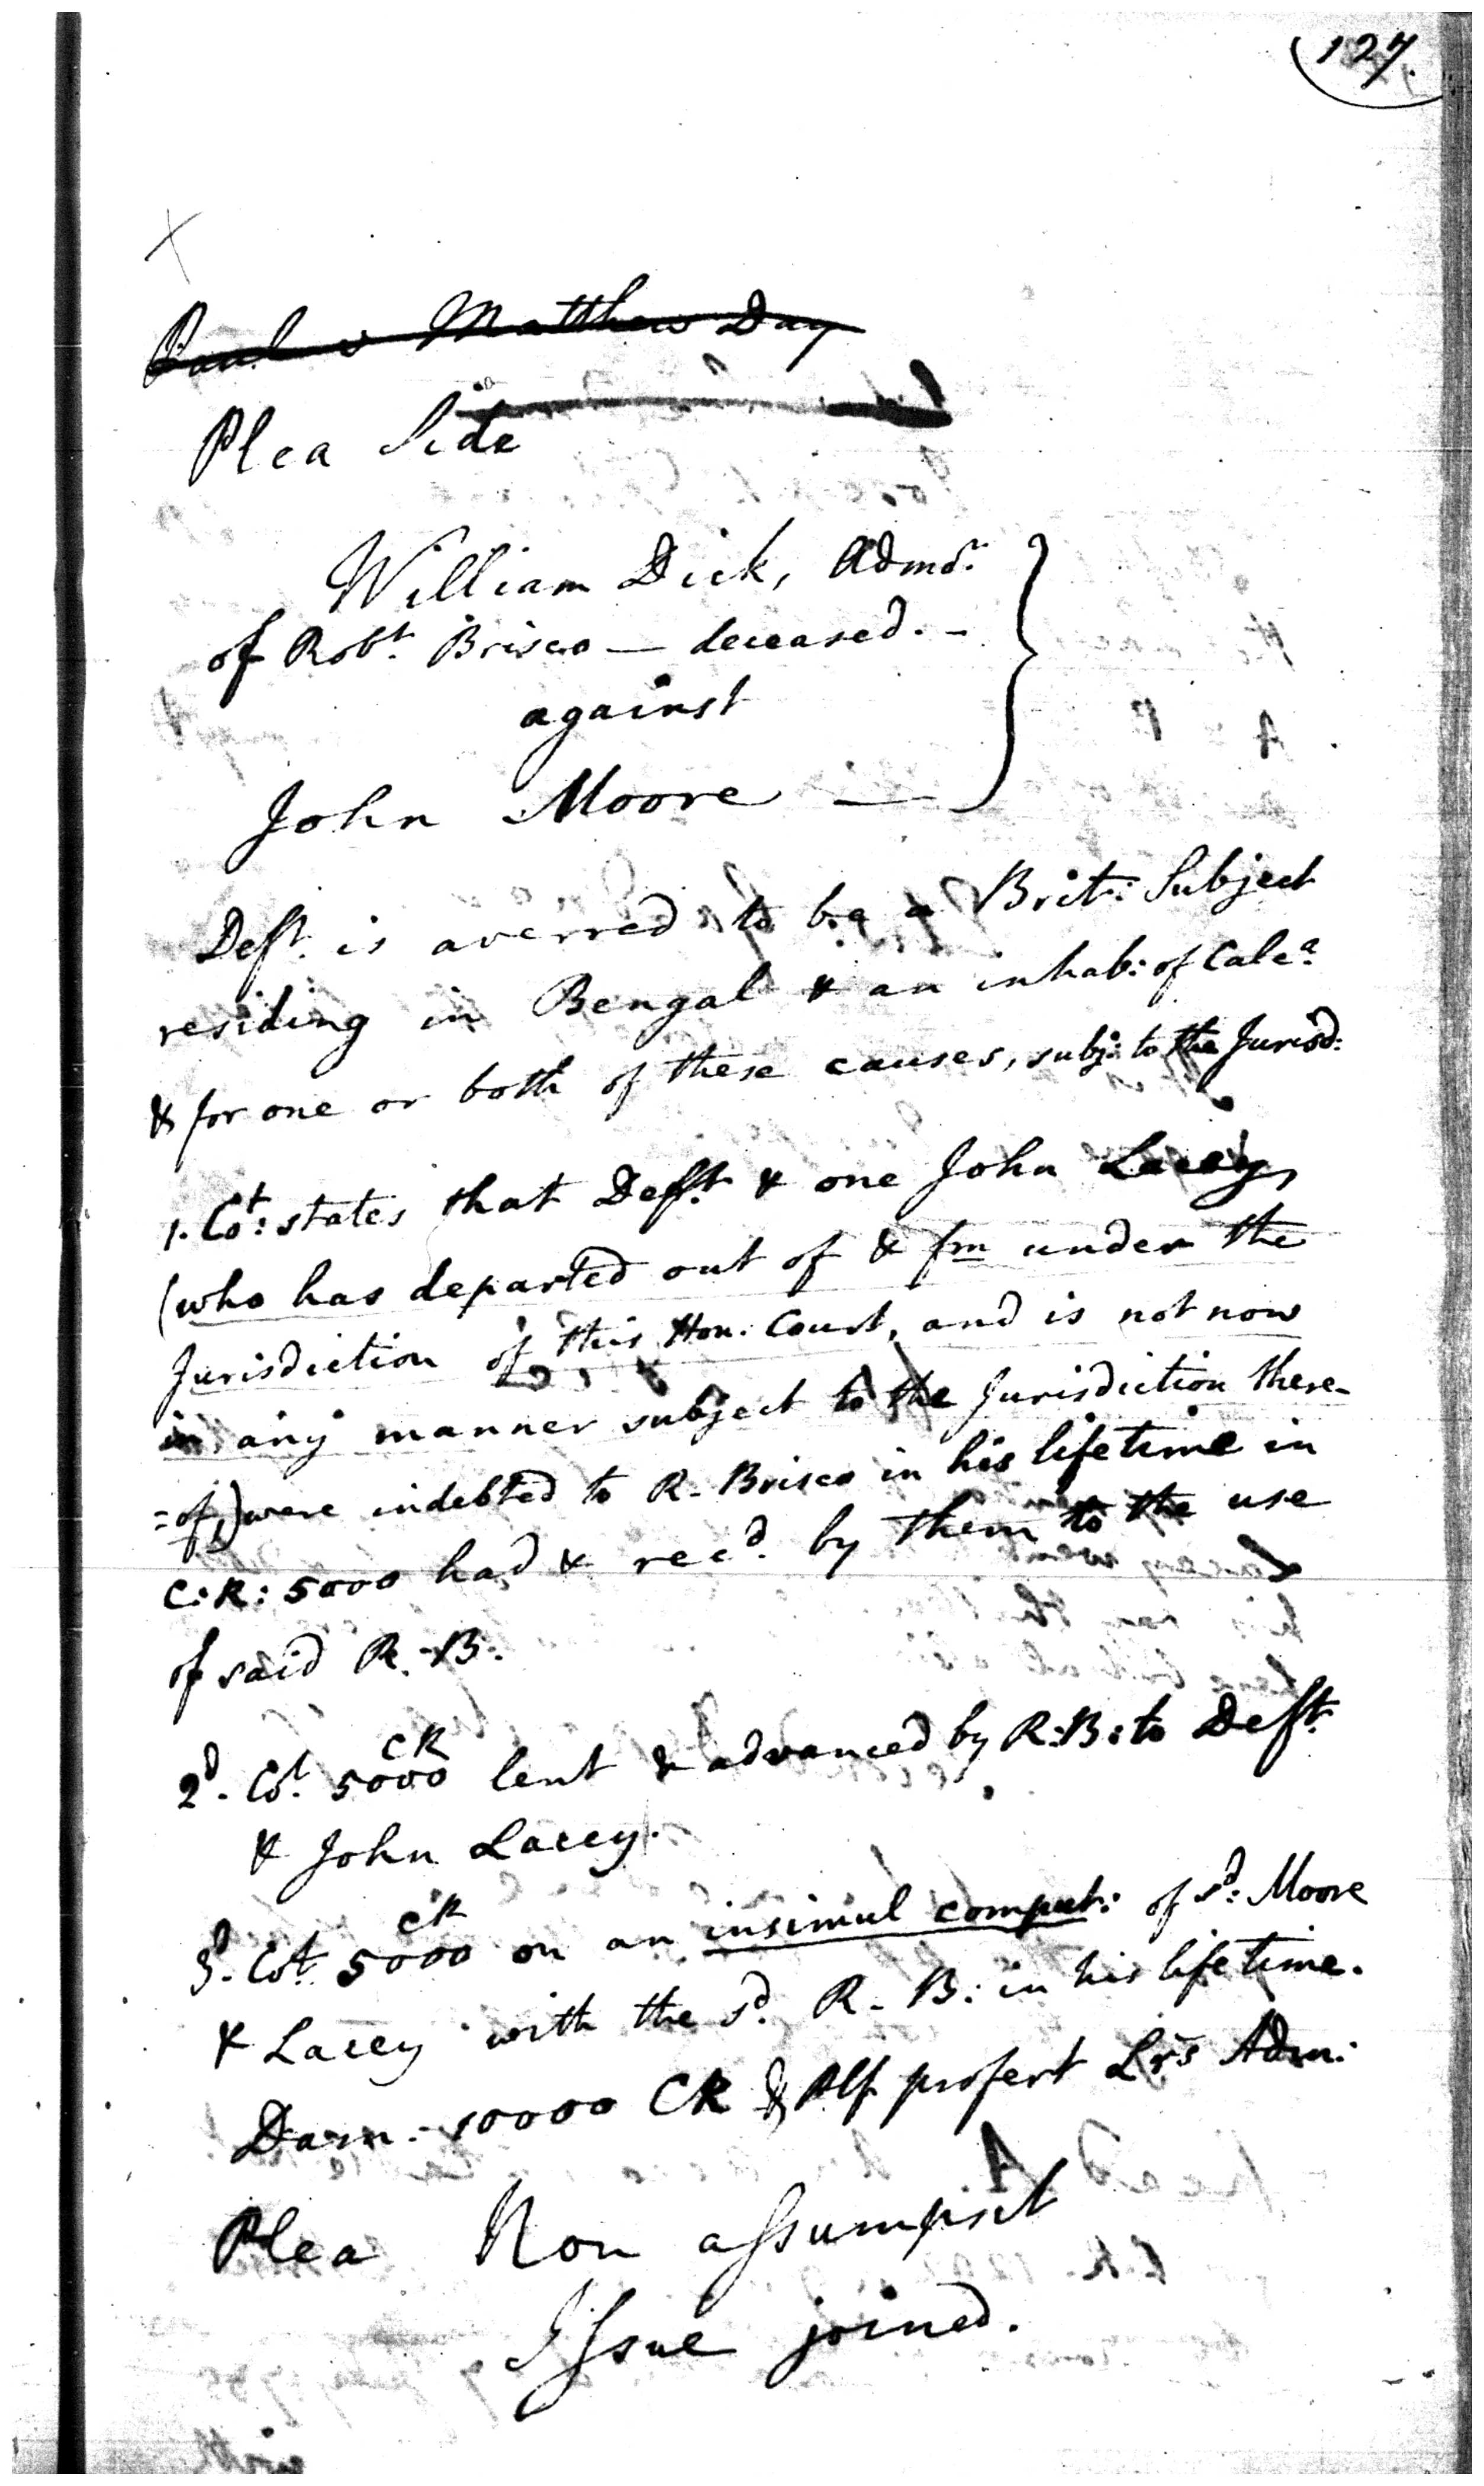 127.
Paul v Matthew Day
Plea Side
William Dick, Admor.
of Robt. Brisco — deceased. -
against
John Moore —
Deft. is averred to be a Brit: Subject
residing in Bengal & an inhab: of Calca.
& for one or both of these causes, subj: to the Jurisd:
1. Cot: states that Deft. & one John Lacey,
(who has departed out of & fm under the
Jurisdiction of this Hon. Court, and is not now
in any manner subject to the Jurisdiction there-
=of,) were indebted to R. Brisco in his lifetime in
C:R: 5000 had & recd. by them to the use
of said R. B.
2d. Cot. 5000 CR lent & advanced by R:B: to Deft
& John Lacey.
3d. Cot. 5000 CR on an insimul comput: of sd: Moore
& Lacey with the sd. R. B: in his lifetime.
Dam:- 10000 CR & Plf profert Lrs Adm:
Plea Non assumpsit
Issue joined.